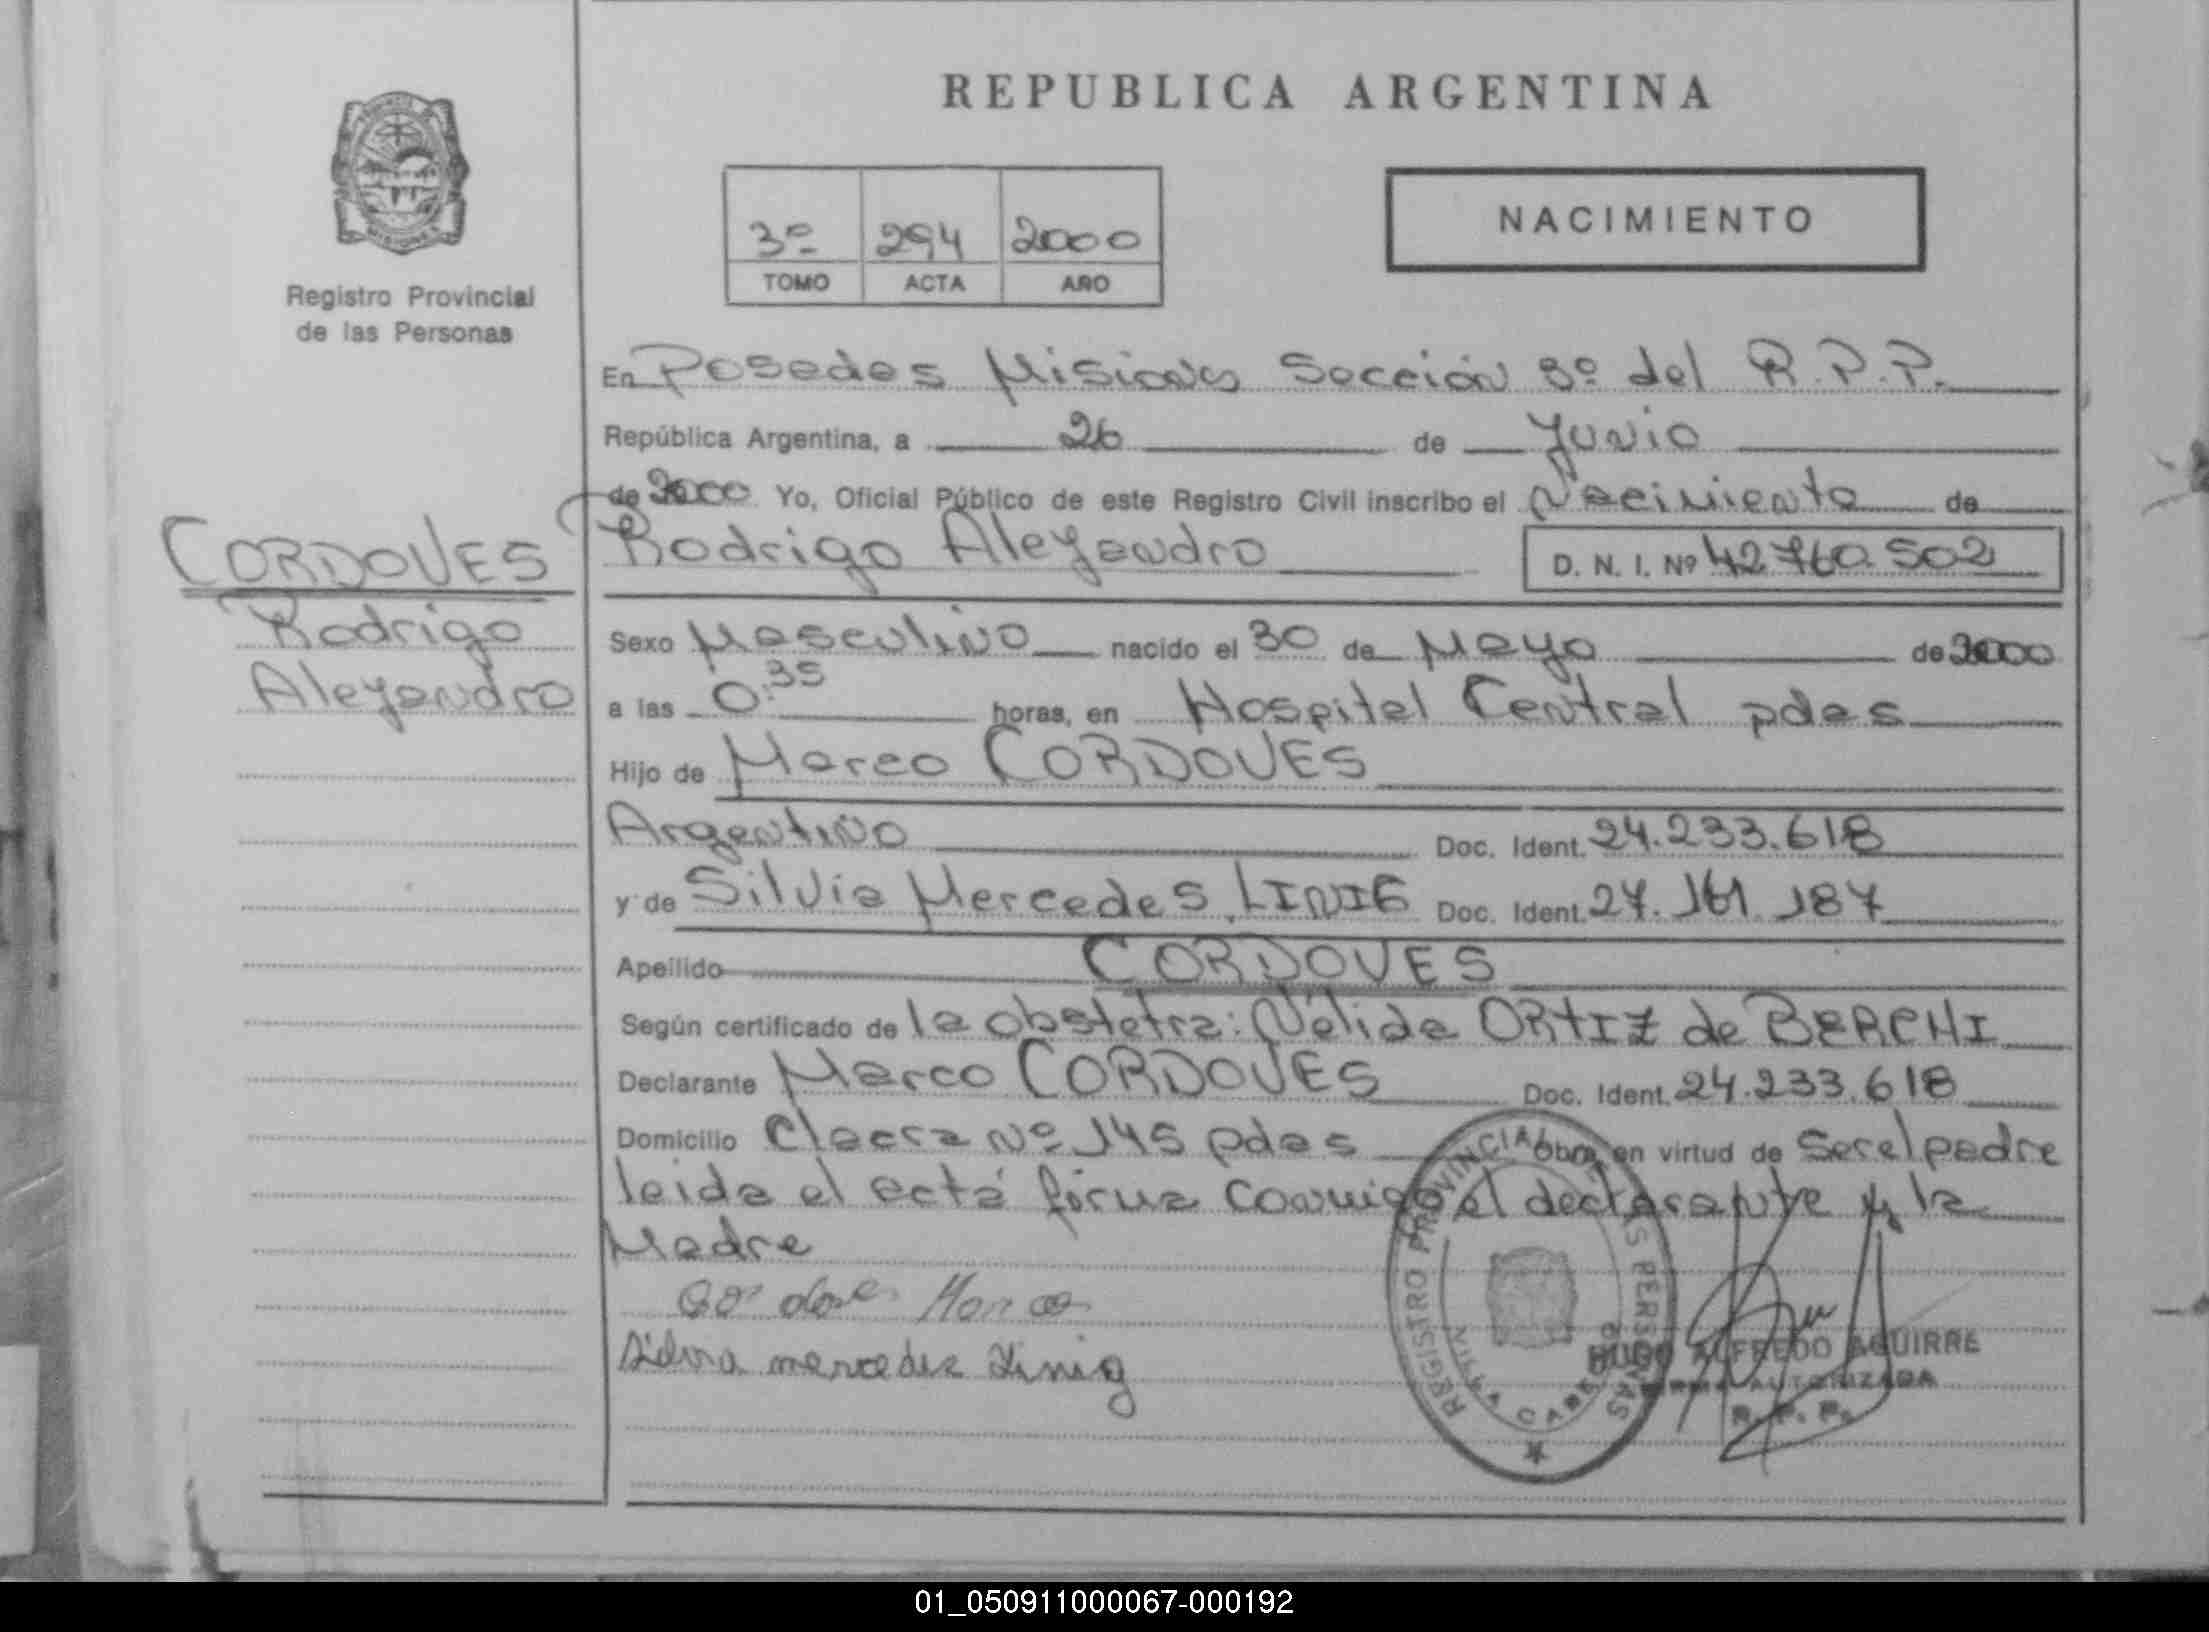 REPUBLICA ARGENTINA
MISIONES
Registro Provincial
de las Personas
3º 294 2000
TOMO ACTA AÑO
NACIMIENTO
En Posadas Misiones Sección 3º del R.P.P.
República Argentina, a 26 de Junio
de 2000 Yo, Oficial Público de este Registro Civil inscribo el Nacimiento de
CORDOVES
Rodrigo
Alejandro
Rodrigo Alejandro D. N. I. Nº 42.760.502
Sexo Masculino nacido el 30 de Mayo de 2000
a las 0:35 horas, en Hospital Central pdas
Hijo de Marco CORDOVES
Argentino Doc. Ident. 24.233.618
y de Silvia Mercedes LINIG Doc. Ident. 27.161.187
Apellido CORDOVES
Según certificado de la obstetra: Nélida ORTIZ de BERCHI
Declarante Marco CORDOVES Doc. Ident. 24.233.618
Domicilio Chacra Nº 145 pdas Obra en virtud de Ser el padre
leida el acta firma conmigo el declarante y la
Madre
Silvia mercedes Linig
REGISTRO PROVINCIAL PERSONAS
HUGO ALFREDO AGUIRRE
FIRMA AUTORIZADA
R. P. P.
01_050911000067-000192